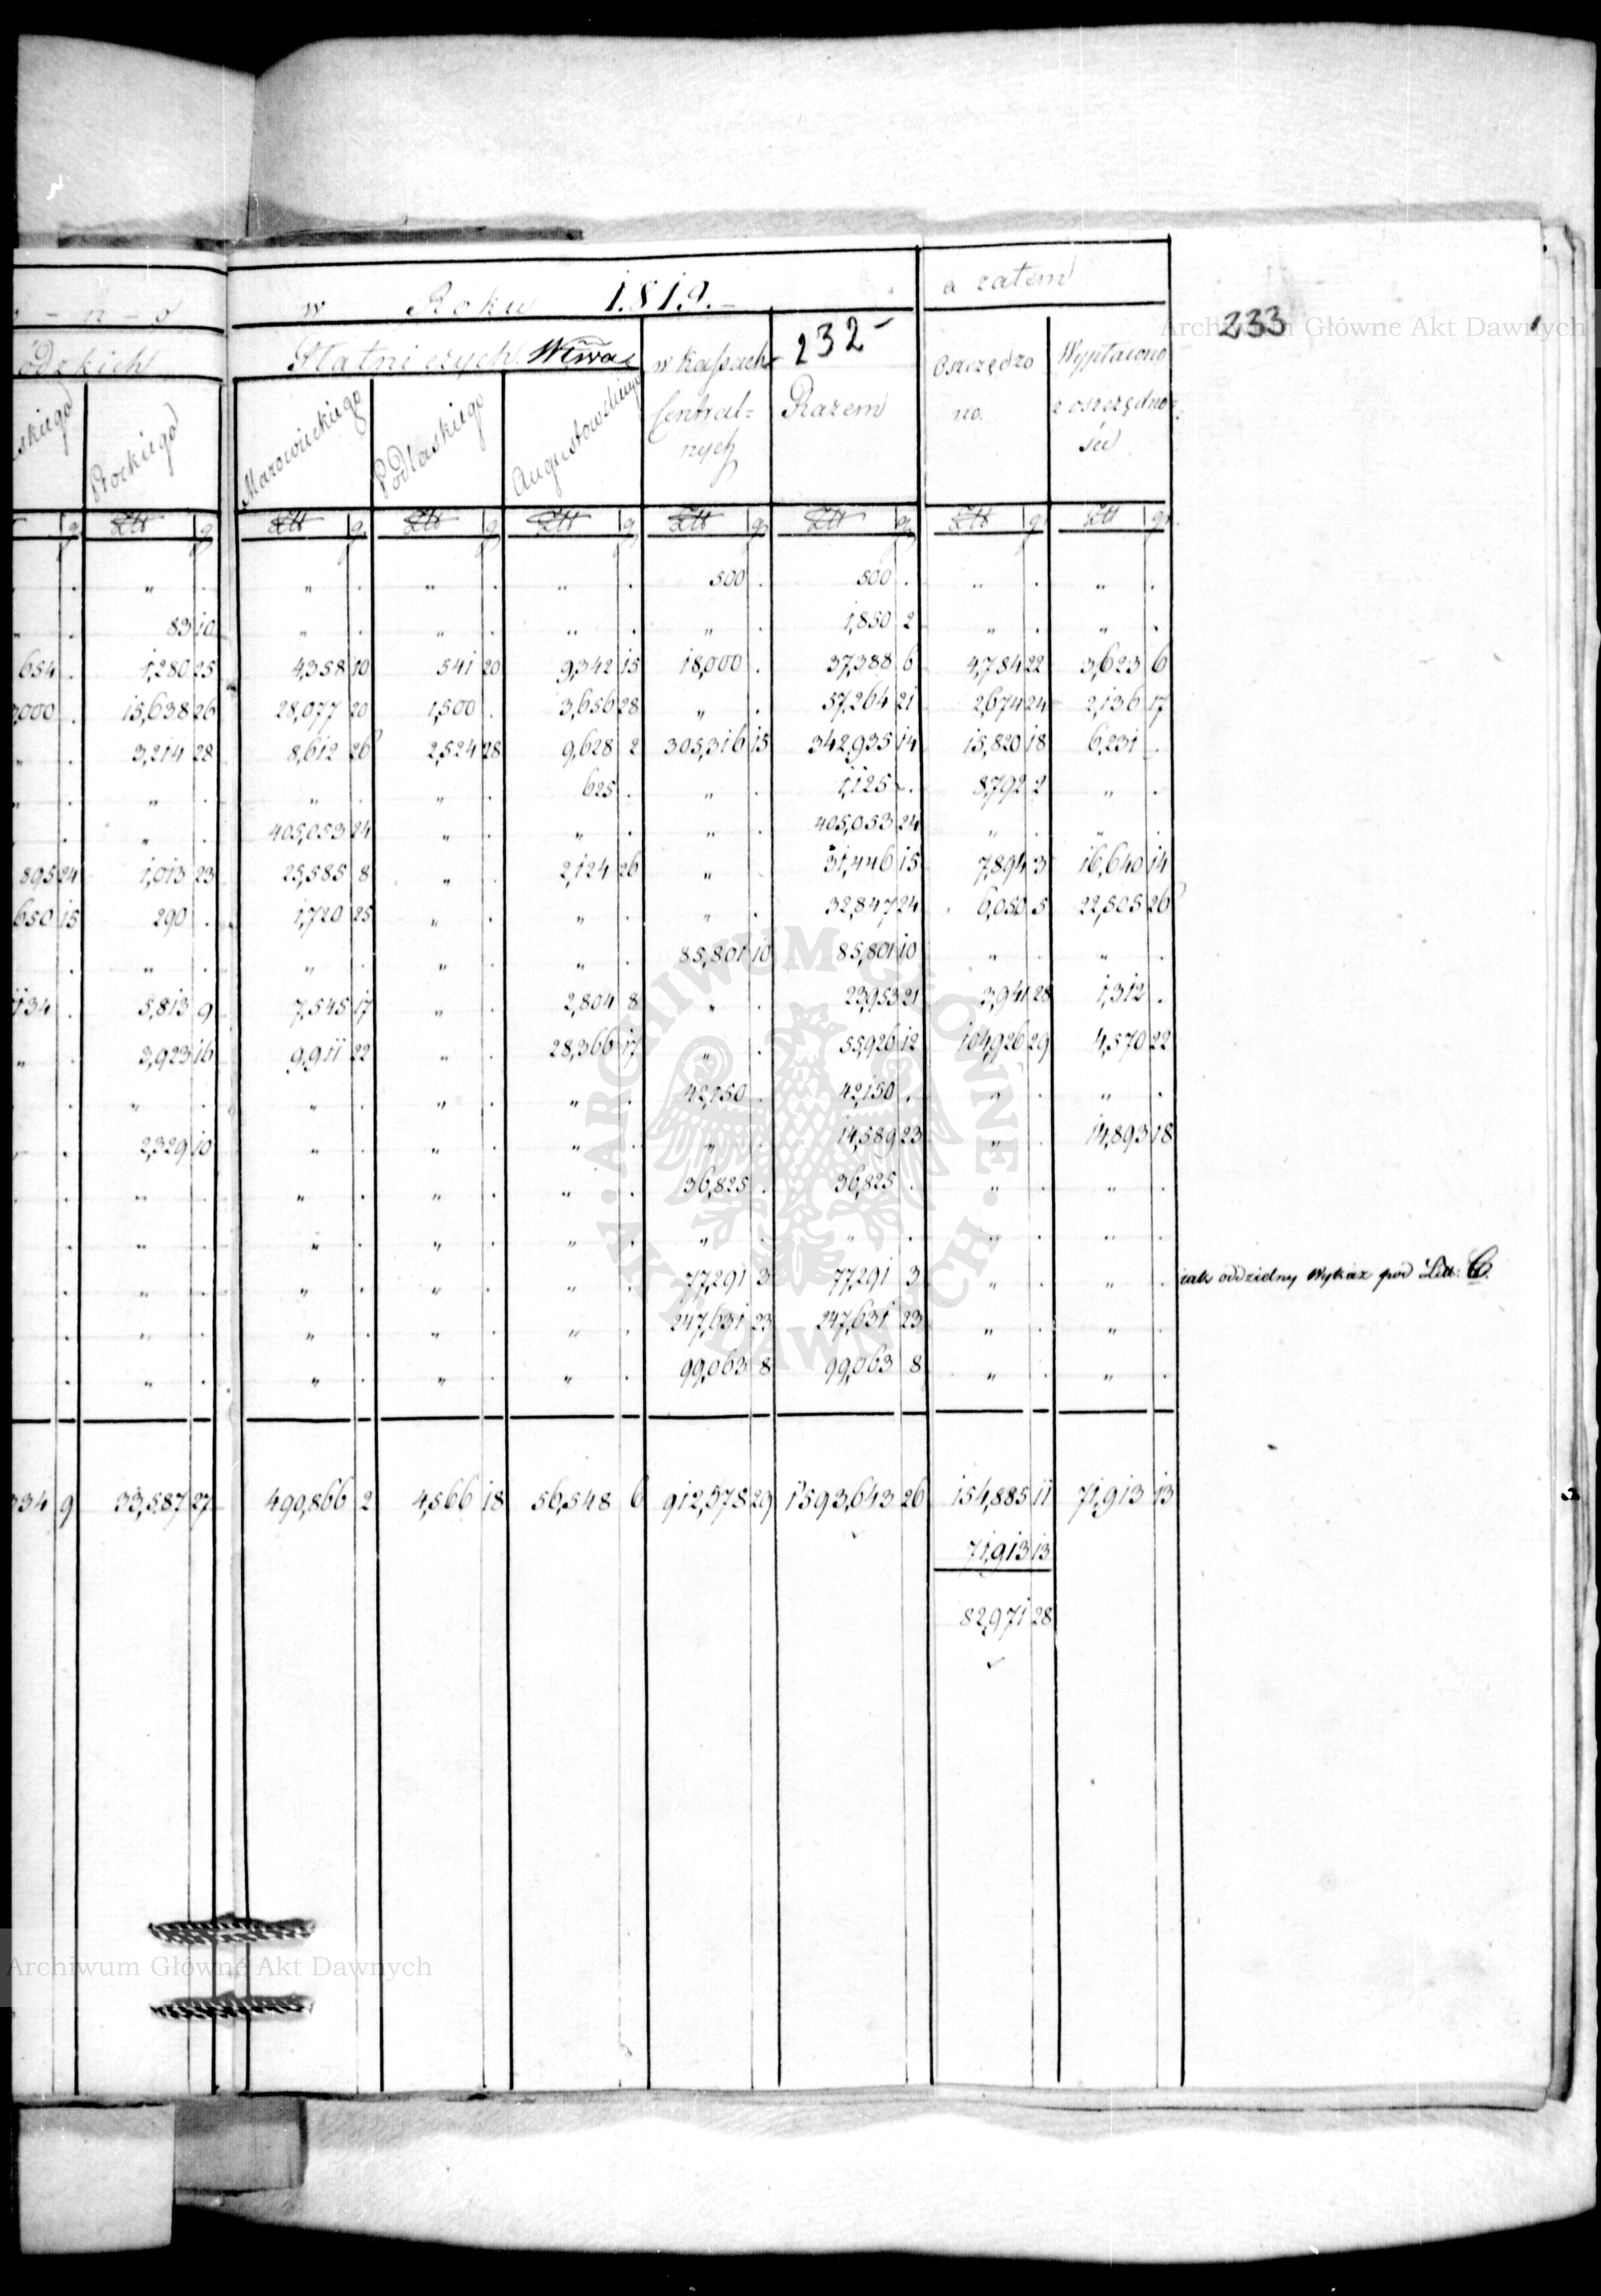 w Roku 1819.
a zatem
- n - o
233
232
ódzkich
Płatniczych Wtwa
w Kassach
Centralnych
Razem
Oszczędzono
Wypłacono z oszczędności
skiego
Płockiego
Mazowieckiego
Podlaskiego
Augustowskiego
g Złt g Złt g Złt g Złt g Złt g Złt g Złt g Złt g
. „ . „ . „ . „ . 500 . 500 . „ . „ .
„ . 83 10 „ . „ . „ . „ . 1,850 2 „ . „ .
654 . 1,280 25 4,358 10 541 20 9,342 15 18,000 . 37,388 6 4,784 22 3,623 6
,000 . 15,638 26 28,077 20 1,500 . 3,656 28 „ . 57,264 21 2,674 24 2,136 17
„ . 3,214 28 8,612 26 2,524 28 9,628 2 305,316 15 342,935 14 15,820 18 6,231 .
„ . „ . „ . „ . 625 . „ . 1,125 . 8,792 2 „ .
. „ . 405,053 24 „ . „ . „ . 405,053 24 „ . „ .
895 24 1,013 23 25,585 8 „ . 2,124 26 „ 31,446 15 7,894 3 16,640 14
650 15 290 . 1,720 25 „ . „ . „ . 32,847 24 6,050 5 22,505 26
. „ . „ . „ . „ . 85,801 10 85,801 10 „ . „ .
134 . 5,813 9 7,545 17 „ . 2,804 8 „ . 23,953 21 3,941 28 1,312 .
„ . 3,923 16 9,911 22 „ . 28,366 17 „ . 55,926 12 104,926 29 4,570 22
. „ . „ . „ . „ . 42,150 . 42,150 . „ . „ .
. 2,329 10 „ . „ . „ . „ . 14,589 23 „ . 14,893 18
. „ . „ . „ . „ . 36,825 . 36,825 . „ . „ .
. „ . „ . „ . „ . „ . „ . „ . „ .
. „ . „ . „ . „ . 77,291 3 77,291 3 „ . „ . iak oddzielny Wykaz pod Litt: C.
. „ . „ . „ . „ . 247,631 23 247,631 23 „ . „ .
. „ . „ . „ . „ . 99,063 8 99,063 8 „ . „ .
334 9 33,587 27 490,866 2 4,566 18 56,548 6 912,578 29 1593,643 26 154,885 11 71,913 13
71,913 13
82,971 28
Archiwum Główne Akt Dawnych
ARCHIWUM GŁÓWNE AKT DAWNYCH
Archiwum Główne Akt Dawnych